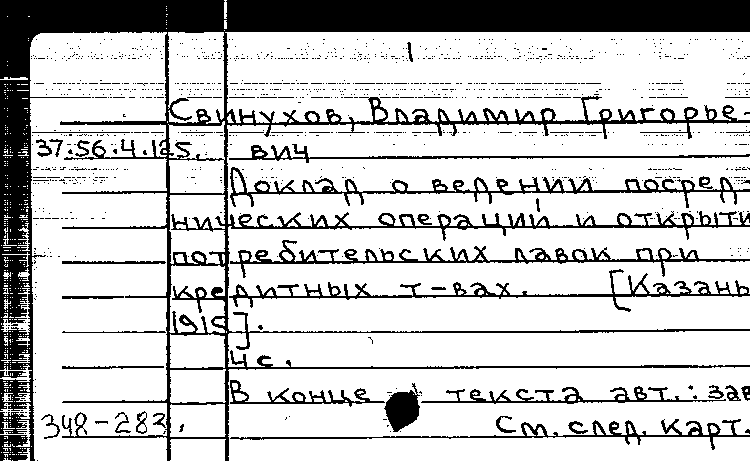 1
Свинухов, Владимир Григорье-
37.56.4.125. вич
Доклад о ведении посред-
нических операций и открыти
потребительских лавок при
кредитных т-вах. [Казань
1915].
4 с.
В конце текста авт.: зав
348-283. См. след. карт.